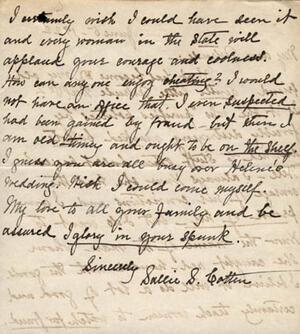 I certainly wish I could have seen it
and every woman in the State will
applaud your courage and coolness.
How can any one enjoy cheating? I would
not have an office that I even suspected
had been gained by fraud - but then I
am old timey and ought to be on the shelf.
I guess you are all busy over Helen's
wedding. Wish I could come myself.
My love to all your family and be
assured I glory in your spunk.
Sincerely
Sallie S. Cotten